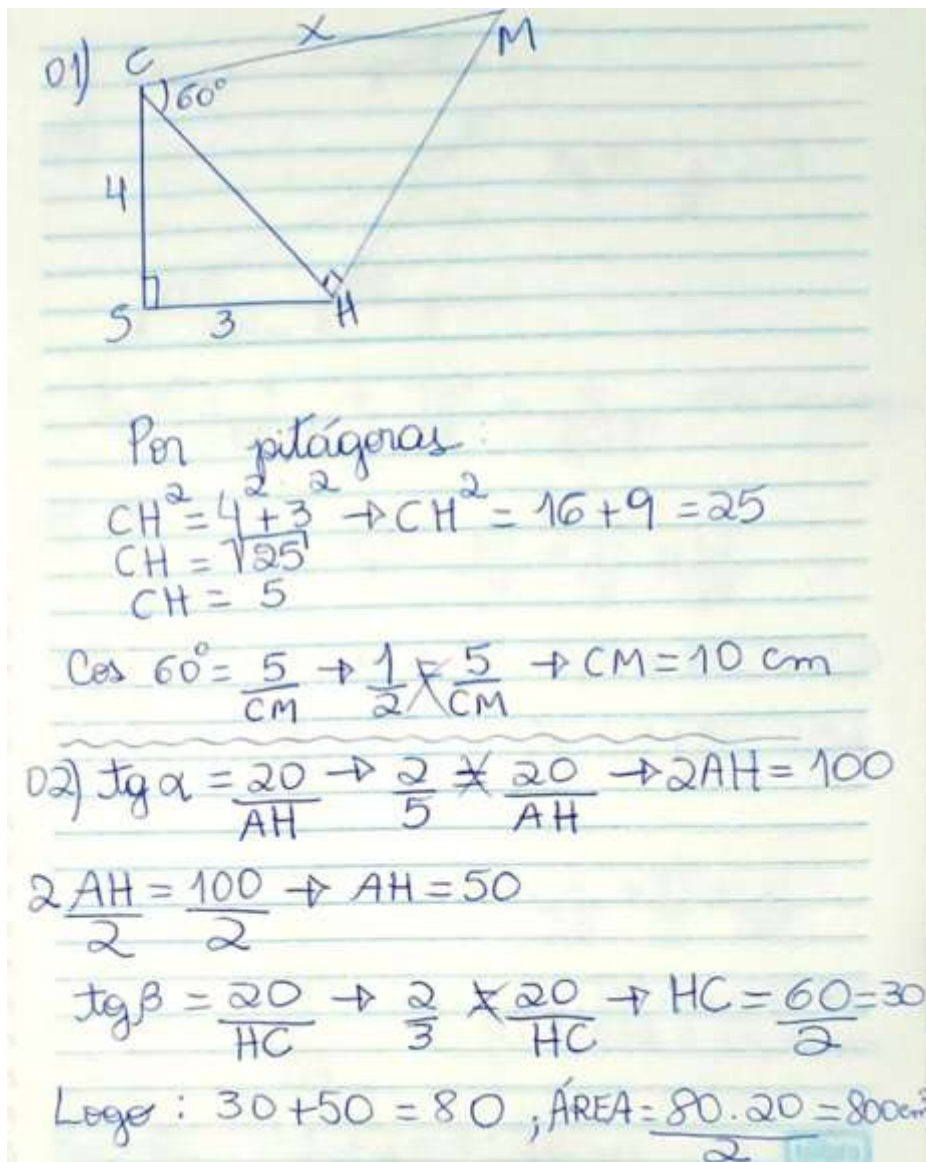 01) C x M
60°
4
S 3 H
Por pitágoras:
CH² = 4² + 3² → CH² = 16 + 9 = 25
CH = √25
CH = 5
Cos 60° = 5/CM → 1/2 = 5/CM → CM = 10 cm
02) tg α = 20/AH → 2/5 = 20/AH → 2AH = 100
2AH/2 = 100/2 → AH = 50
tg β = 20/HC → 2/3 = 20/HC → HC = 60/2 = 30
Logo : 30 + 50 = 80 , ÁREA = 80.20/2 = 800cm²